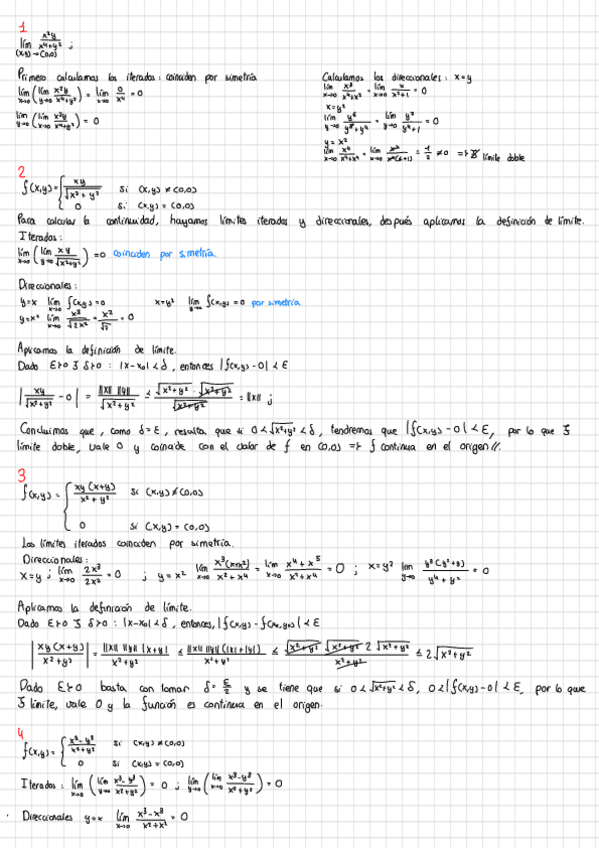 1
lím x²y / x⁴+y² ;
(x,y)→(0,0)
Primero calculamos los iterados: coinciden por simetría
lím x→0 (lím y→0 x²y / x⁴+y²) = lím x→0 0/x⁴ = 0
lím y→0 (lím x→0 x²y / x⁴+y²) = 0
Calculamos los direccionales: x=y
lím x→0 x³ / x⁴+x² = lím x→0 x / x²+1 = 0
x=y²
lím y→0 y⁵ / y⁸+y⁴ = lím y→0 y / y⁴+1 = 0
y=x²
lím x→0 x⁴ / x⁴+x⁴ = lím x→0 x⁴ / x⁴(1+1) = 1/2 ≠0 => ∄ límite doble
2
f(x,y)= { xy / √x²+y² si (x,y)≠(0,0)
0 si (x,y)=(0,0)
Para calcular la continuidad, hayamos límites iterados y direccionales, después aplicamos la definición de límite.
Iterados:
lím x→0 (lím y→0 xy / √x²+y²) =0 coinciden por simetría.
Direccionales:
y=x lím x→0 f(x,y)=0 x=y² lím y→0 f(x,y)=0 por simetría
y=x² lím x→0 x³ / √2x² = x² / √2 = 0
Aplicamos la definición de límite.
Dado ε>0 ∃ δ>0 : |x-x₀|<δ, entonces |f(x,y)-0|<ε
|xy / √x²+y² - 0| = ||x|| ||y|| / √x²+y² ≤ √x²+y² · √x²+y² / √x²+y² = ||x|| ;
Concluimos que, como δ=ε, resulta que si 0<√x²+y²<δ, tendremos que |f(x,y)-0|<ε, por lo que ∃
límite doble, vale 0 y coincide con el valor de f en (0,0) => f continua en el origen//.
3
f(x,y)= { xy(x+y) / x²+y² si (x,y)≠(0,0)
0 si (x,y)=(0,0)
Los límites iterados coinciden por simetría.
Direccionales:
x=y ; lím x→0 2x³ / 2x² = 0 ; y=x² lím x→0 x³(x+x²) / x²+x⁴ = lím x→0 x⁴+x⁵ / x²+x⁴ = 0 ; x=y² lím y→0 y³(y²+y) / y⁴+y² = 0
Aplicamos la definición de límite.
Dado ε>0 ∃ δ>0 : |x-x₀|<δ, entonces, |f(x,y)-f(x₀,y₀)|<ε
|xy(x+y) / x²+y²| = ||x|| ||y|| |x+y| / x²+y² ≤ ||x|| ||y|| (|x|+|y|) / x²+y² ≤ √x²+y² √x²+y² 2√x²+y² / x²+y² ≤ 2√x²+y²
Dado ε>0 basta con tomar δ=ε/2 y se tiene que si 0<√x²+y²<δ, 0<|f(x,y)-0|<ε, por lo que
∃ límite, vale 0 y la función es continua en el origen.
4
f(x,y)= { x³-y³ / x²+y² si (x,y)≠(0,0)
0 si (x,y)=(0,0)
Iterados: lím x→0 (lím y→0 x³-y³ / x²+y²) = 0 ; lím y→0 (lím x→0 x³-y³ / x²+y²) = 0
Direccionales y=x lím x→0 x³-x³ / x²+x² = 0